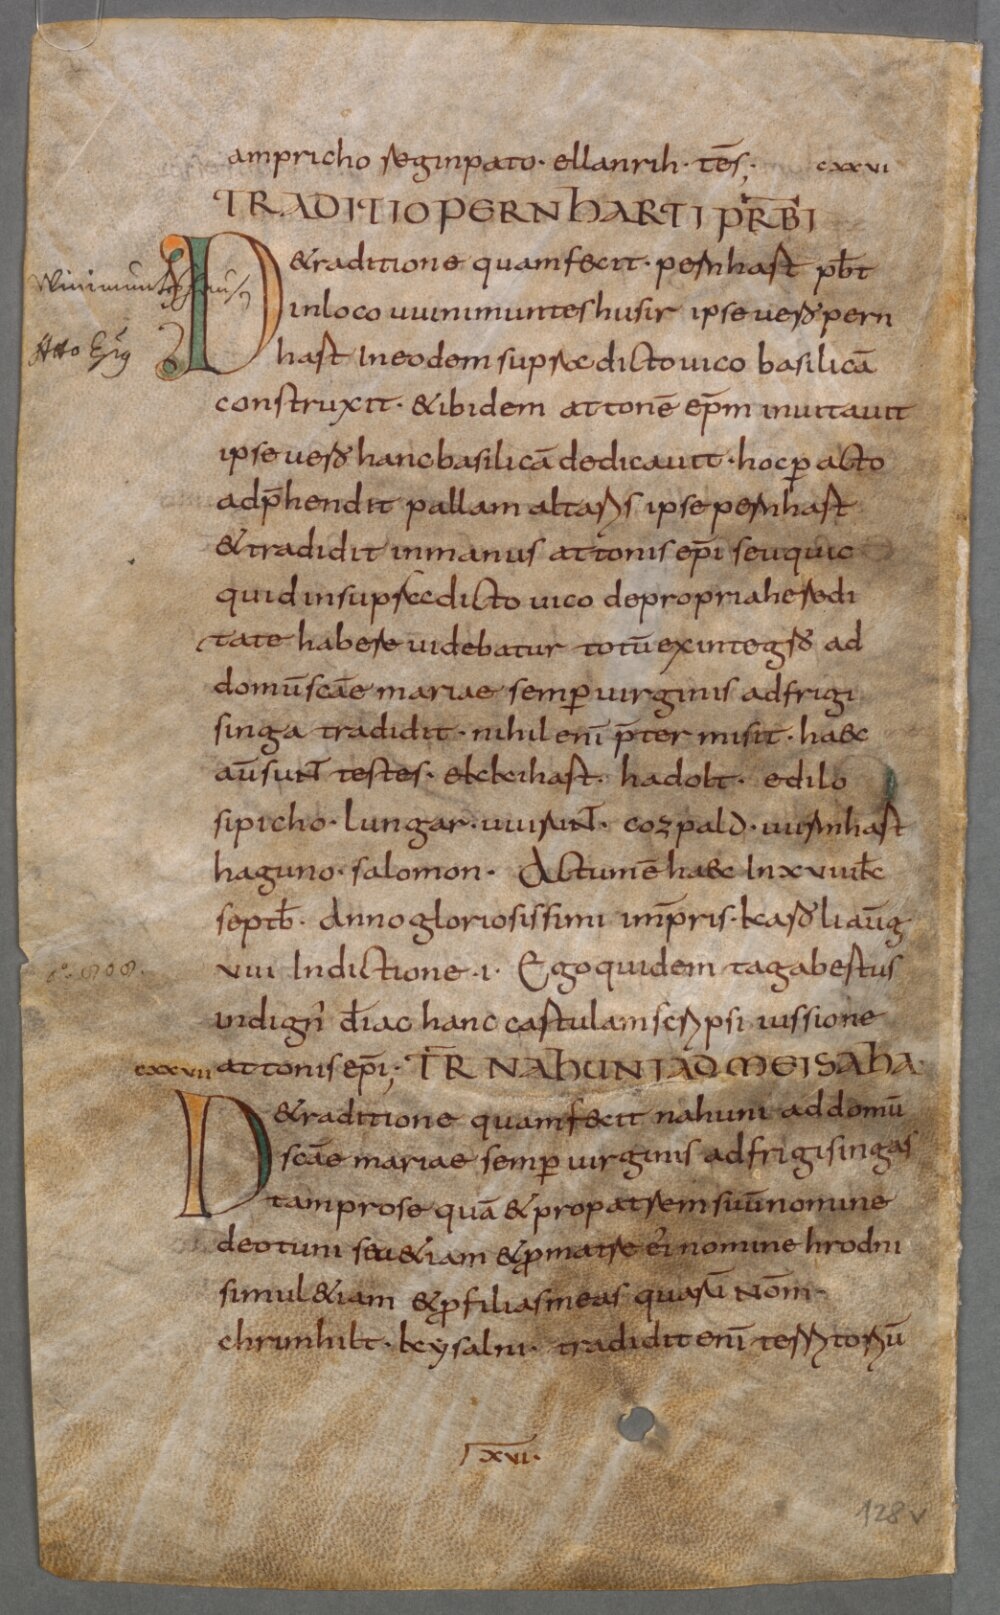 ampricho reginpato · ellanrih · tēs; cxxvi
TRADITIO PERNHARTI PR̄B̄I
Winimuntshaus
Atto Ep̄s
De traditione quam fecit · pernhart pb̄t
in loco uuinimunteshusir ipse uero pern
hart In eodem supradicto uico basilicā
construxit · & ibidem attonē ep̄m inuitauit
ipse uero hanc basilicā dedicauit · hoc peracto
adp̄hendit pallam altaris ipse pernhart
& tradidit in manus attonis ep̄i seu quic
quid in supradicto uico de propria heredi
tate habere uidebatur totū ex integro ad
domū sc̄ae mariae semp uirginis ad frigi
singa tradidit · nihil enī p̄termisit · haec
aūt sunt testes · ekkihart · hadolt · edilo
sipicho · lungar · uuisunt · cozpald · uurmhart
haguno · salomon · Actum ē haec In xv iiii kl
septb̄ · Anno gloriosissimi imp̄ris · karoli aūg
viii Indictione · i · Ego quidem tagabertus
indign' diac hanc cartulam scripsi iussione
cxxvii attonis ep̄i; TR̄ NAHUNI AD MEISAHA ·
De traditione quam fecit nahuni ad domū
sc̄ae mariae semp uirginis ad frigisingas
tam pro se quā & pro patrem suū nomine
deotuni seu &iam & p matre ei' nomine hrodni
simul &iam & p filias meas quarū nōm ·
chrimhilt · keysalni · tradidit enī terri toriū
xvi ·
128v